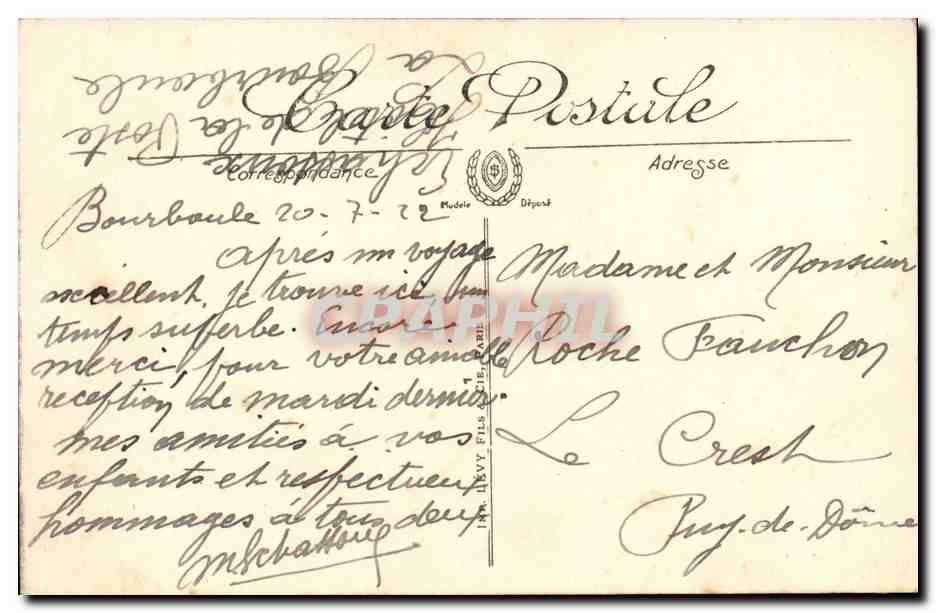 La Bourboule
de la Poste
Carte Postale
Correspondance
Adresse
Modèle Déposé
Bourboule 20-7-22
après un voyage
excellent, je trouve ici un
temps superbe. Encore
merci, pour votre aimable
reception de mardi dernier.
mes amitiés à vos
enfants et respectueux
hommages à tous deux
Madame et Monsieur
Roche Fauchon
Le Crest
Puy-de-Dôme
IMP. LEVY FILS & CIE, PARIS
CPAPHIL